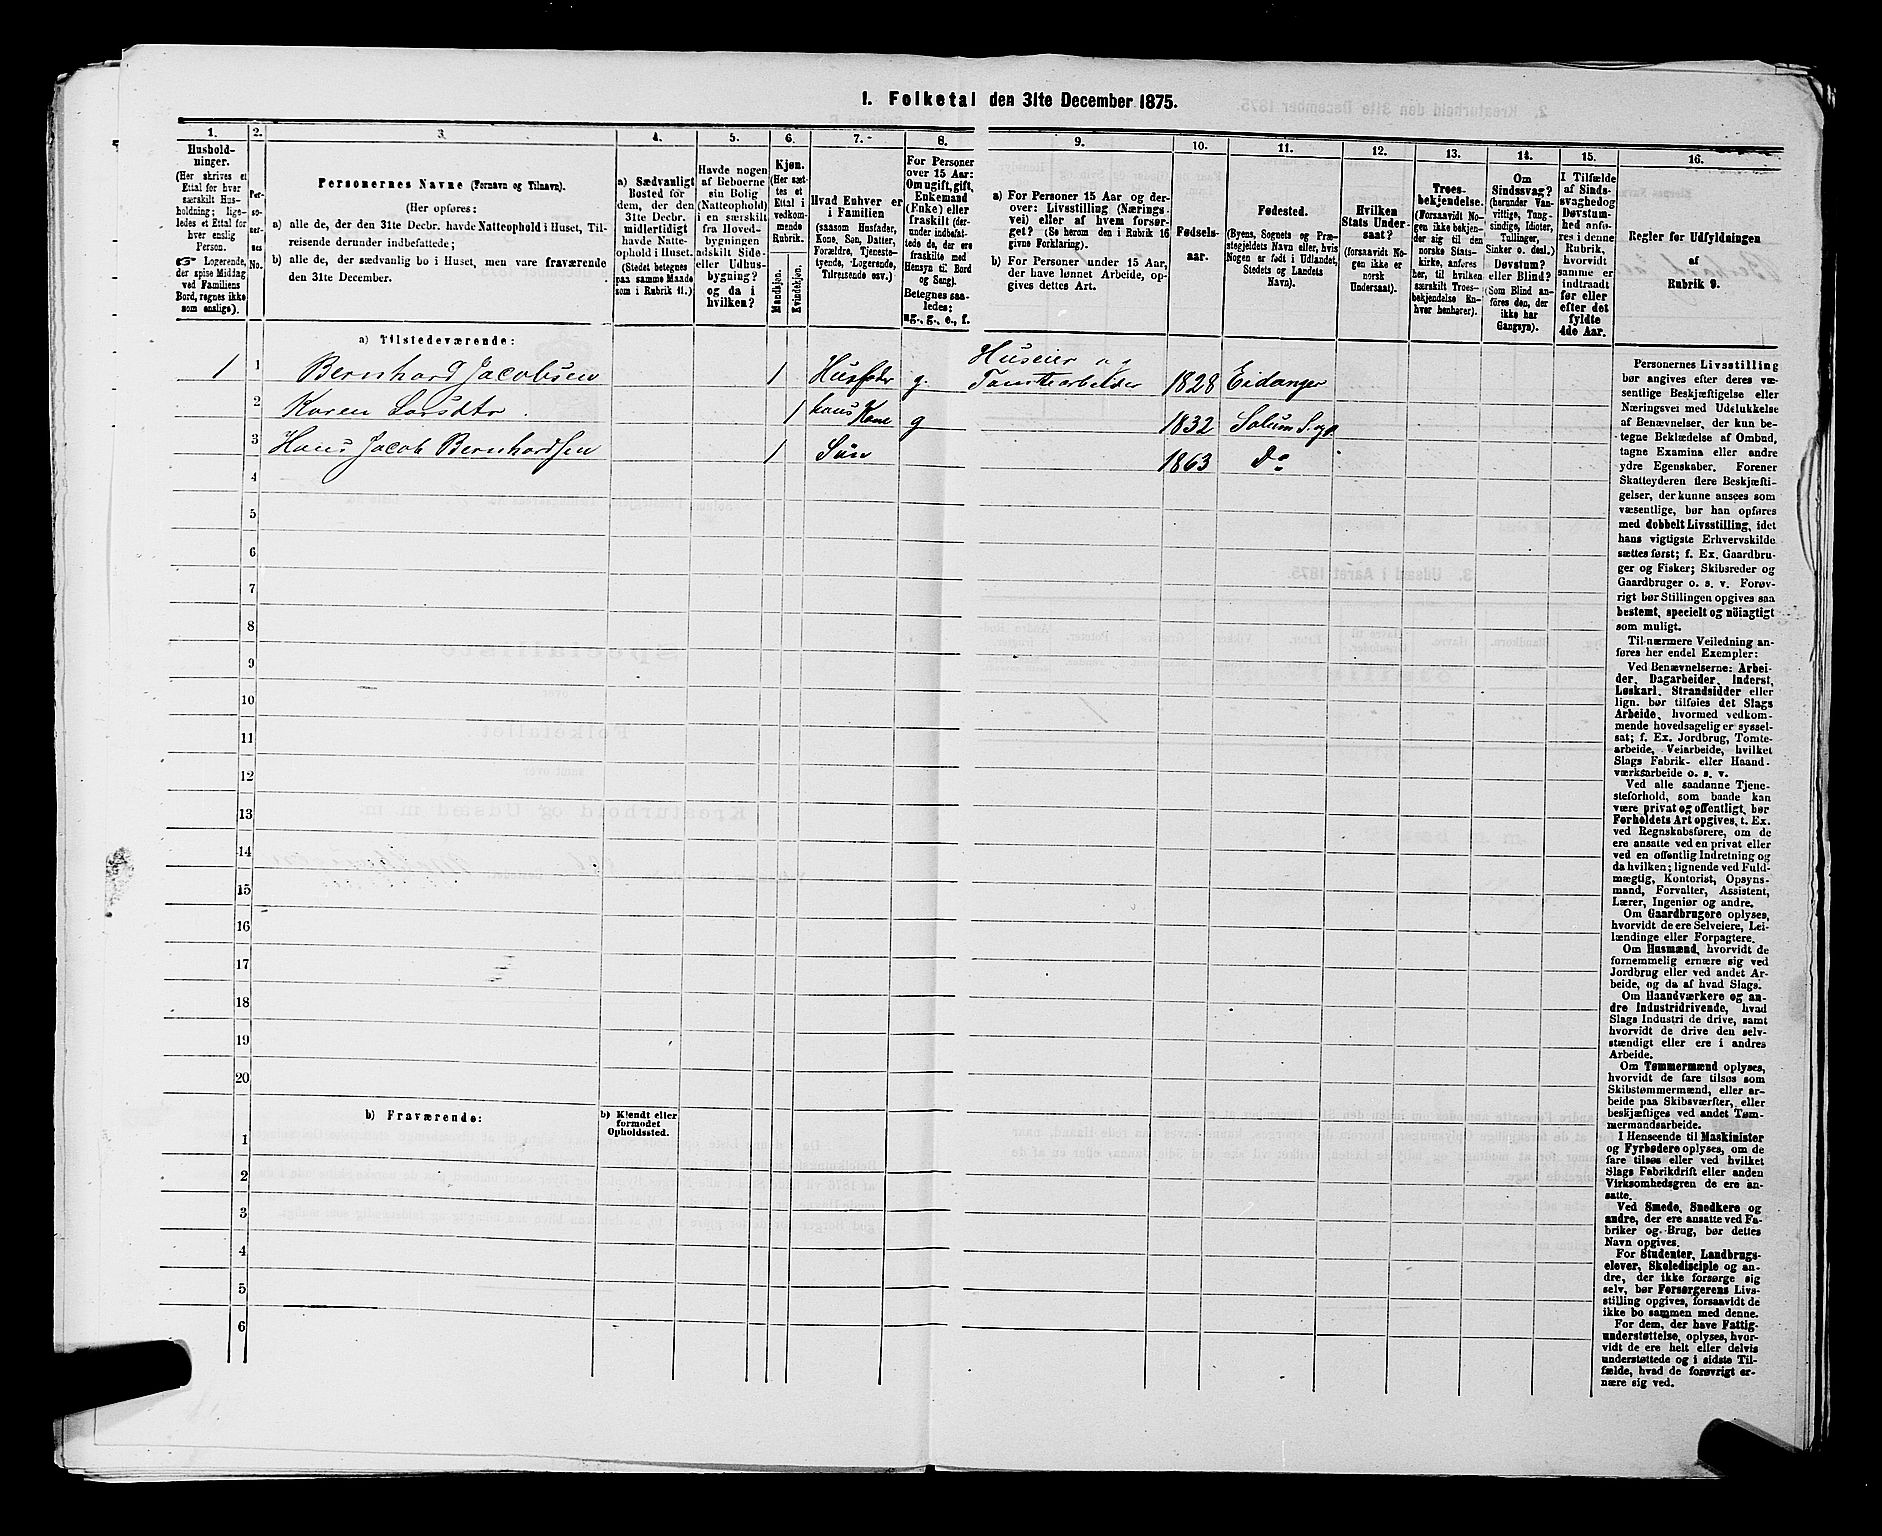 1. Folketal den 31te December 1875.
1. 2. 3. 4. 5. 6. 7. 8. 9. 10. 11. 12. 13. 14. 15. 16.
Hushold-
ninger.
(Her skrives et
Ettal for hver
særskilt Hus-
holdning; lige-
ledes et Ettal for
hver enslig
Person.
☞ Logerende,
der spise Middag
ved Familiens
Bord, regnes ikke
som enslige).
Per-
so-
ner-
nes
No.
Personernes Navne (Fornavn og Tilnavn).
(Her opføres:
a) alle de, der den 31te Decbr. havde Natteophold i Huset, Til-
reisende derunder indbefattede;
b) alle de, der sædvanlig bo i Huset, men vare fraværende
den 31te December.
a) Sædvanligt
Bosted for
dem, der den
31te Decbr.
midlertidigt
havde Natte-
ophold i Huset.
(Stedet betegnes
paa samme Maade
som i Rubrik 11.)
Havde nogen
af Beboerne
sin Bolig
(Natteophold)
i en særskilt
fra Hoved-
bygningen
adskilt Side-
eller Udhus-
bygning?
og da i
hvilken?
Kjøn.
(Her sæt-
tes et
Ettal i
vedkom-
mende
Rubrik.
Mandkjøn.
Kvindekjøn.
Hvad Enhver er
i Familien
(saasom Husfader,
Kone, Søn, Datter,
Forældre, Tjeneste-
tyende, Logerende,
Tilreisende osv.)
For Personer
over 15 Aar:
Om ugift, gift,
Enkemand
(Enke) eller
fraskilt (der-
under indbefat-
tede de, der ere
fraskilte med
Hensyn til Bord
og Seng).
Betegnes saa-
ledes:
ug., g., e., f.
a) For Personer 15 Aar og der-
over: Livsstilling (Nærings-
vei) eller af hvem forsør-
get? (Se herom den i Rubrik 16
givne Forklaring).
b) For Personer under 15 Aar,
der have lønnet Arbeide, op-
gives dettes Art.
Fødsels-
aar.
Fødested.
(Byens, Sognets og Præ-
stegjeldets Navn eller, hvis
Nogen er født i Udlandet,
Stedets og Landets
Navn).
Hvilken
Stats Under-
saat?
(forsaavidt No-
gen ikke er
norsk
Undersaat).
Troes-
bekjendelse.
(Forsaavidt No-
gen ikke bekjen-
der sig til den
norske Stats-
kirke, anføres
her, til hvilken
særskilt Troes-
bekjendelse En-
hver henhører).
Om
Sindssvag?
(herunder Van-
vittige, Tung-
sindige, Idioter,
Tullinger,
Sinker o. desl.)
Døvstum?
eller Blind?
(Som Blind an-
føres den, der
ikke har
Gangsyn).
I Tilfælde
af Sinds-
svaghed og
Døvstum-
hed anfø-
res i denne
Rubrik,
hvorvidt
samme er
indtraadt
før eller
efter det
fyldte
4de Aar.
Regler for Udfyldningen
af
Rubrik 9.
a) Tilstedeværende:
1 1 Bernhard Jacobsen 1 Husfader g. Huseier og
Tomtearbeider 1828 Eidanger
2 Karen Larsdtr. 1 hans Kone g 1832 Solum S. og P.
3 Hans Jacob Bernhardsen 1 Søn 1863 Do
4
5
6
7
8
9
10
11
12
13
14
15
16
17
18
19
20
b) Fraværende:
b) Kjendt eller
formodet
Opholdssted.
1
2
3
4
5
6
Personernes Livsstilling
bør angives efter deres væ-
sentlige Beskjæftigelse eller
Næringsvei med Udelukkelse
af Benævnelser, der kun be-
tegne Beklædelse af Ombud,
tagne Examina eller andre
ydre Egenskaber. Forener
Skatteyderen flere Beskjæfti-
gelser, der kunne ansees som
væsentlige, bør han opføres
med dobbelt Livsstilling, idet
hans vigtigste Erhvervskilde
sættes først; f. Ex. Gaardbru-
ger og Fisker; Skibsreder og
Gaardbruger o. s. v. Forøv-
rigt bør Stillingen opgives saa
bestemt, specielt og nöiagtigt
som muligt.
Til nærmere Veiledning an-
føres her endel Exempler:
Ved Benævnelserne: Arbei-
der, Dagarbeider, Inderst,
Løskarl, Strandsidder eller
lign. bør tilføies det Slags
Arbeide, hvormed vedkom-
mende hovedsagelig er syssel-
sat; f. Ex. Jordbrug, Tomte-
arbeide, Veiarbeide, hvilket
Slags Fabrik- eller Haand-
værksarbeide o. s. v.
Ved alle saadanne Tjene-
steforhold, som baade kan
være privat og offentligt, bør
Forholdets Art opgives, t. Ex.
ved Regnskabsførere, om de
ere ansatte ved en privat eller
ved en offentlig Indretning og
da hvilken; lignende ved Fuld-
mægtig, Kontorist, Opsyns-
mand, Forvalter, Assistent,
Lærer, Ingeniør og andre.
Om Gaardbrugere oplyses,
hvorvidt de ere Selveiere, Lei-
lændinge eller Forpagtere.
Om Husmænd, hvorvidt de
fornemmelig ernære sig ved
Jordbrug eller ved andet Ar-
beide, og da af hvad Slags.
Om Haandværkere og an-
dre Industridrivende, hvad
Slags Industri de drive, samt
hvorvidt de drive den selv-
stændigt eller ere i andres
Arbeide.
Om Tømmermænd oplyses,
hvorvidt de fare tilsøs som
Skibstømmermænd, eller ar-
beide paa Skibsværfter, eller
beskjæftiges ved andet Tøm-
mermandsarbeide.
I Henseende til Maskinister
og Fyrbødere oplyses, om de
fare tilsøs eller ved hvilket
Slags Fabrikdrift eller anden
Virksomhedsgren de ere an-
satte.
Ved Smede, Snedkere og
andre, der ere ansatte ved Fa-
briker og Brug, bør dettes
Navn opgives.
For Studenter, Landbrugs-
elever, Skoledisciple og an-
dre, der ikke forsørge sig
selv, bør Forsørgerens Livs-
stilling opgives, forsaavidt de
ikke bo sammen med denne.
For dem, der have Fattig-
understøttelse, oplyses, hvor-
vidt de ere helt eller delvis
understøttede og i sidste Til-
fælde, hvad de forøvrigt er-
nære sig ved.